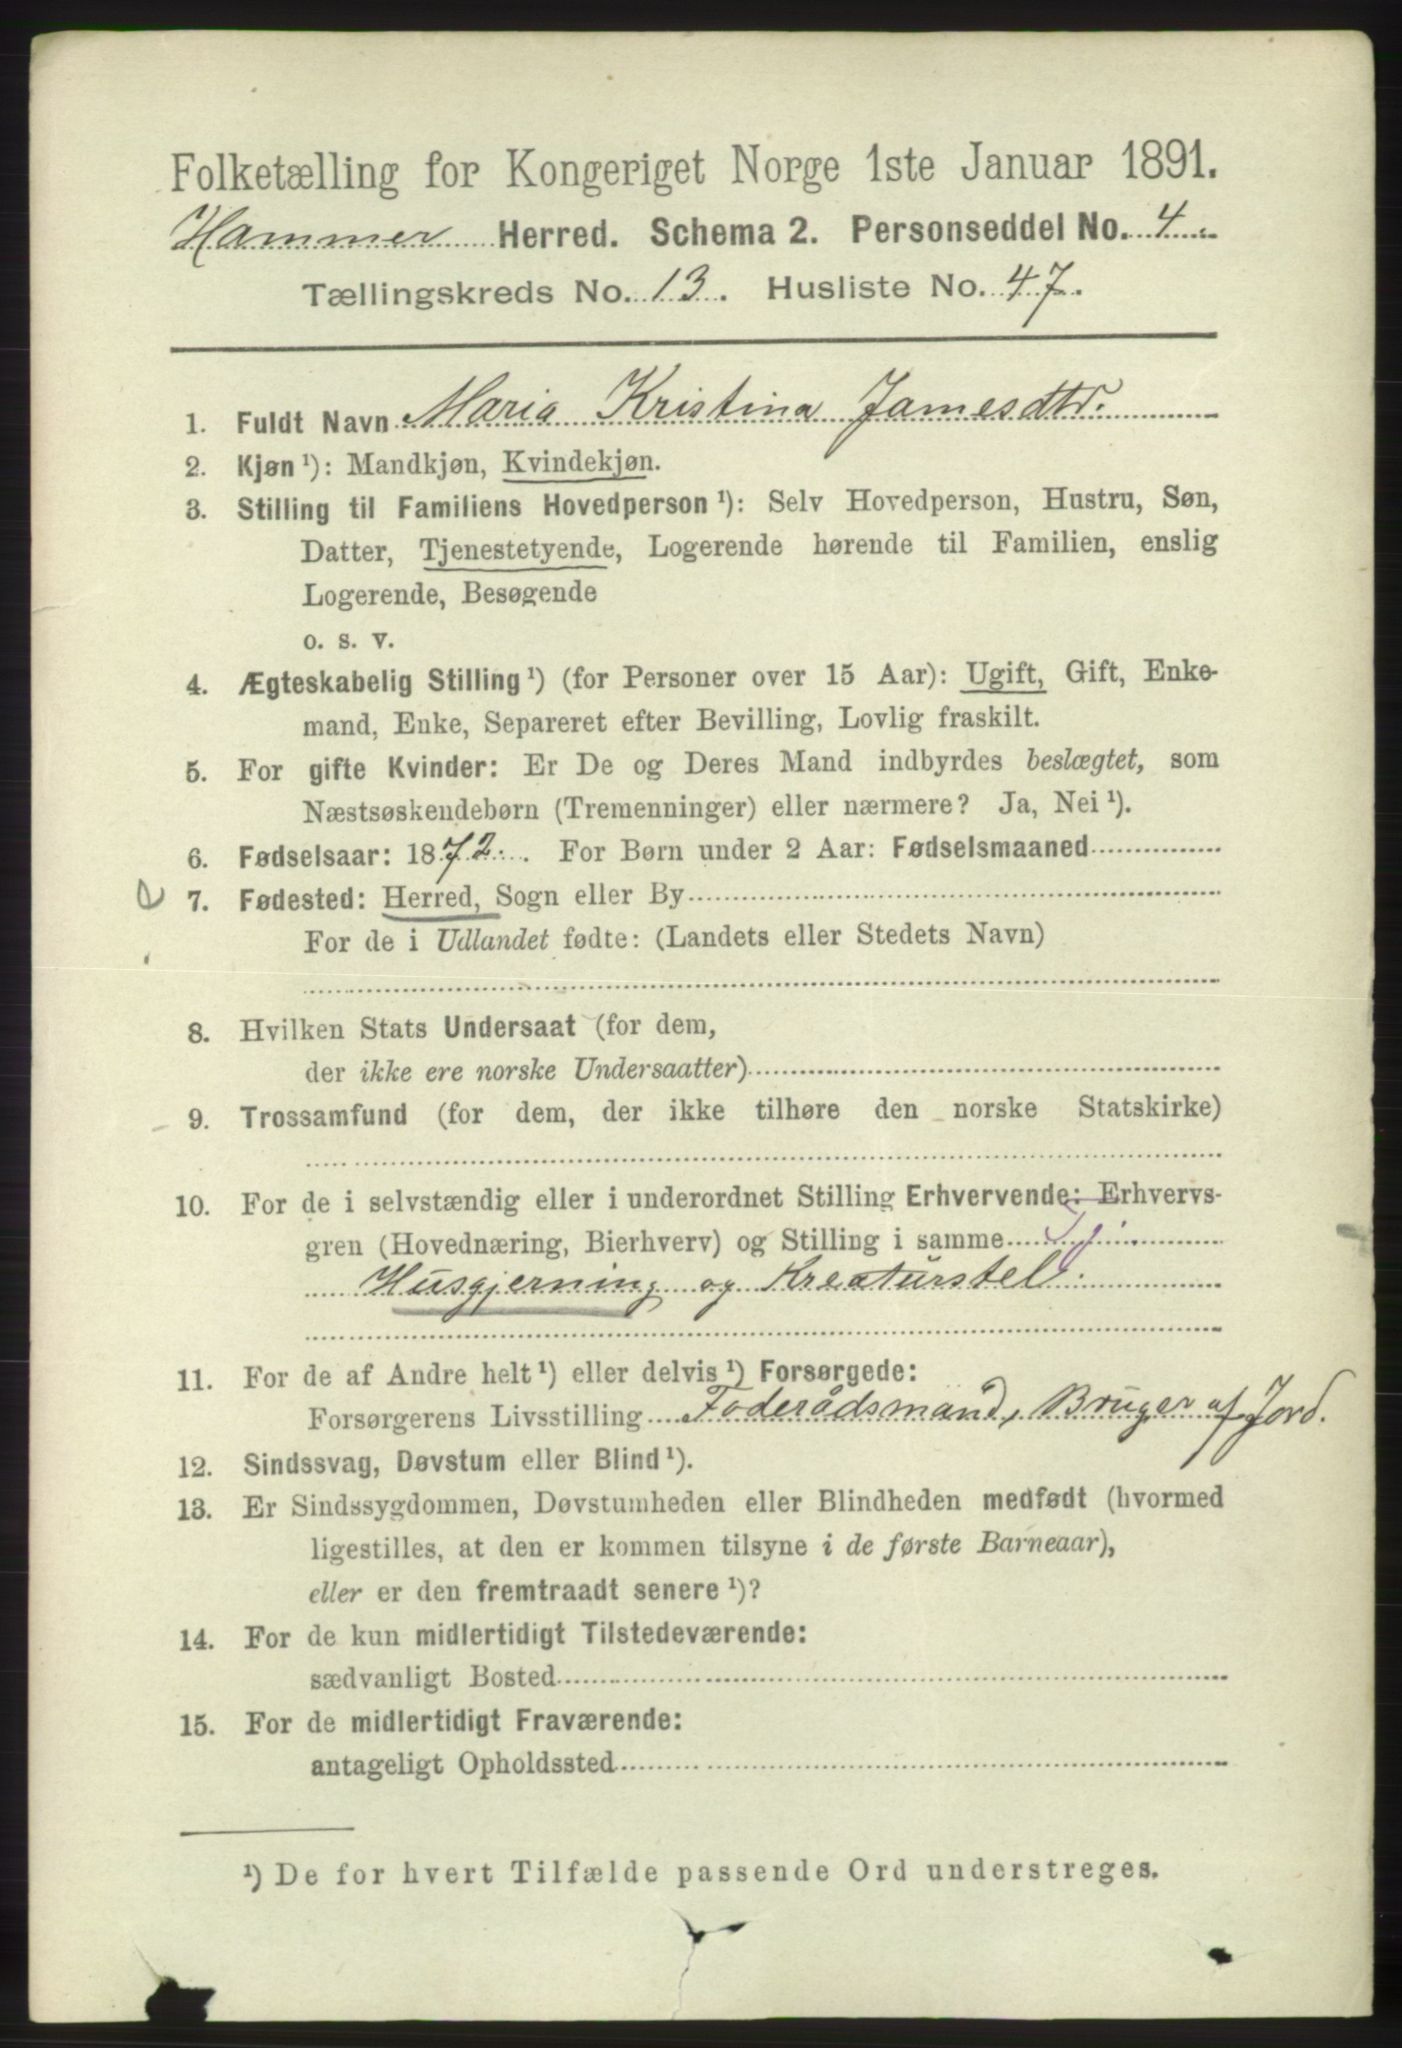 Folketælling for Kongeriget Norge 1ste Januar 1891.
Hammer Herred. Schema 2. Personseddel No. 4
Tællingskreds No. 13. Husliste No. 47.
1. Fuldt Navn Maria Kristina Jamesdtr.
2. Kjøn ¹): Mandkjøn, Kvindekjøn.
3. Stilling til Familiens Hovedperson ¹): Selv Hovedperson, Hustru, Søn,
Datter, Tjenestetyende, Logerende hørende til Familien, enslig
Logerende, Besøgende
o. s. v.
4. Ægteskabelig Stilling ¹) (for Personer over 15 Aar): Ugift, Gift, Enke-
mand, Enke, Separeret efter Bevilling, Lovlig fraskilt.
5. For gifte Kvinder: Er De og Deres Mand indbyrdes beslægtet, som
Næstsøskendebørn (Tremenninger) eller nærmere? Ja, Nei ¹).
6. Fødselsaar: 1872. For Børn under 2 Aar: Fødselsmaaned
7. Fødested: Herred, Sogn eller By
For de i Udlandet fødte: (Landets eller Stedets Navn)
8. Hvilken Stats Undersaat (for dem,
der ikke ere norske Undersaatter)
9. Trossamfund (for dem, der ikke tilhøre den norske Statskirke)
10. For de i selvstændig eller i underordnet Stilling Erhvervende: Erhvervs-
gren (Hovednæring, Bierhverv) og Stilling i samme Tj.
Husgjerning og Kreaturstel.
11. For de af Andre helt ¹) eller delvis ¹) Forsørgede:
Forsørgerens Livsstilling Foderådsmand, Bruger af Jord.
12. Sindssvag, Døvstum eller Blind ¹).
13. Er Sindssygdommen, Døvstumheden eller Blindheden medfødt (hvormed
ligestilles, at den er kommen tilsyne i de første Barneaar),
eller er den fremtraadt senere ¹)?
14. For de kun midlertidigt Tilstedeværende:
sædvanligt Bosted
15. For de midlertidigt Fraværende:
antageligt Opholdssted
¹) De for hvert Tilfælde passende Ord understreges.